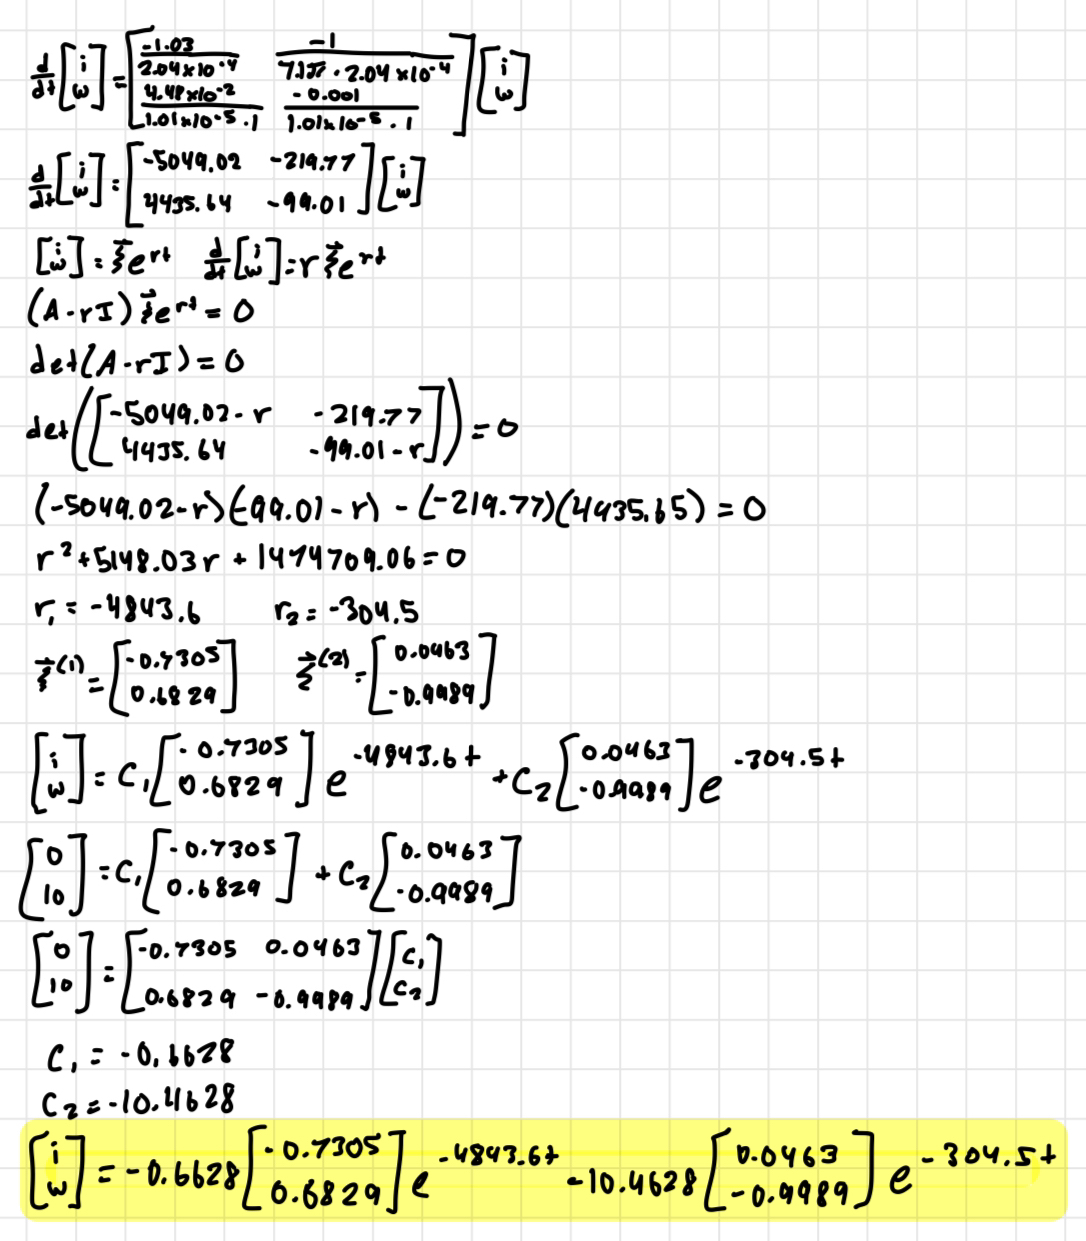 d/dt [i; w] = [-1.03/(2.04×10^-4)  -1/(7.1π · 2.04×10^-4); 4.48×10^-2/(1.01×10^-5 · 1)  -0.001/(1.01×10^-5 · 1)] [i; w]
d/dt [i; w] = [-5049.02  -219.77; 4435.64  -99.01] [i; w]
[i; w] = ξ⃗e^rt   d/dt [i; w] = rξ⃗e^rt
(A-rI) ξ⃗e^rt = 0
det(A-rI) = 0
det([-5049.02-r  -219.77; 4435.64  -99.01-r]) = 0
(-5049.02-r)(-99.01-r) - (-219.77)(4435.65) = 0
r² + 5148.03r + 1474709.06 = 0
r₁ = -4843.6   r₂ = -304.5
ξ⃗^(1) = [-0.7305; 0.6829]   ξ⃗^(2) = [0.0463; -0.9989]
[i; w] = C₁ [-0.7305; 0.6829] e^-4843.6t + C₂ [0.0463; -0.9989] e^-304.5t
[0; 10] = C₁ [-0.7305; 0.6829] + C₂ [0.0463; -0.9989]
[0; 10] = [-0.7305  0.0463; 0.6829  -0.9989] [C₁; C₂]
C₁ = -0.6628
C₂ = -10.4628
[i; w] = -0.6628 [-0.7305; 0.6829] e^-4843.6t -10.4628 [0.0463; -0.9989] e^-304.5t